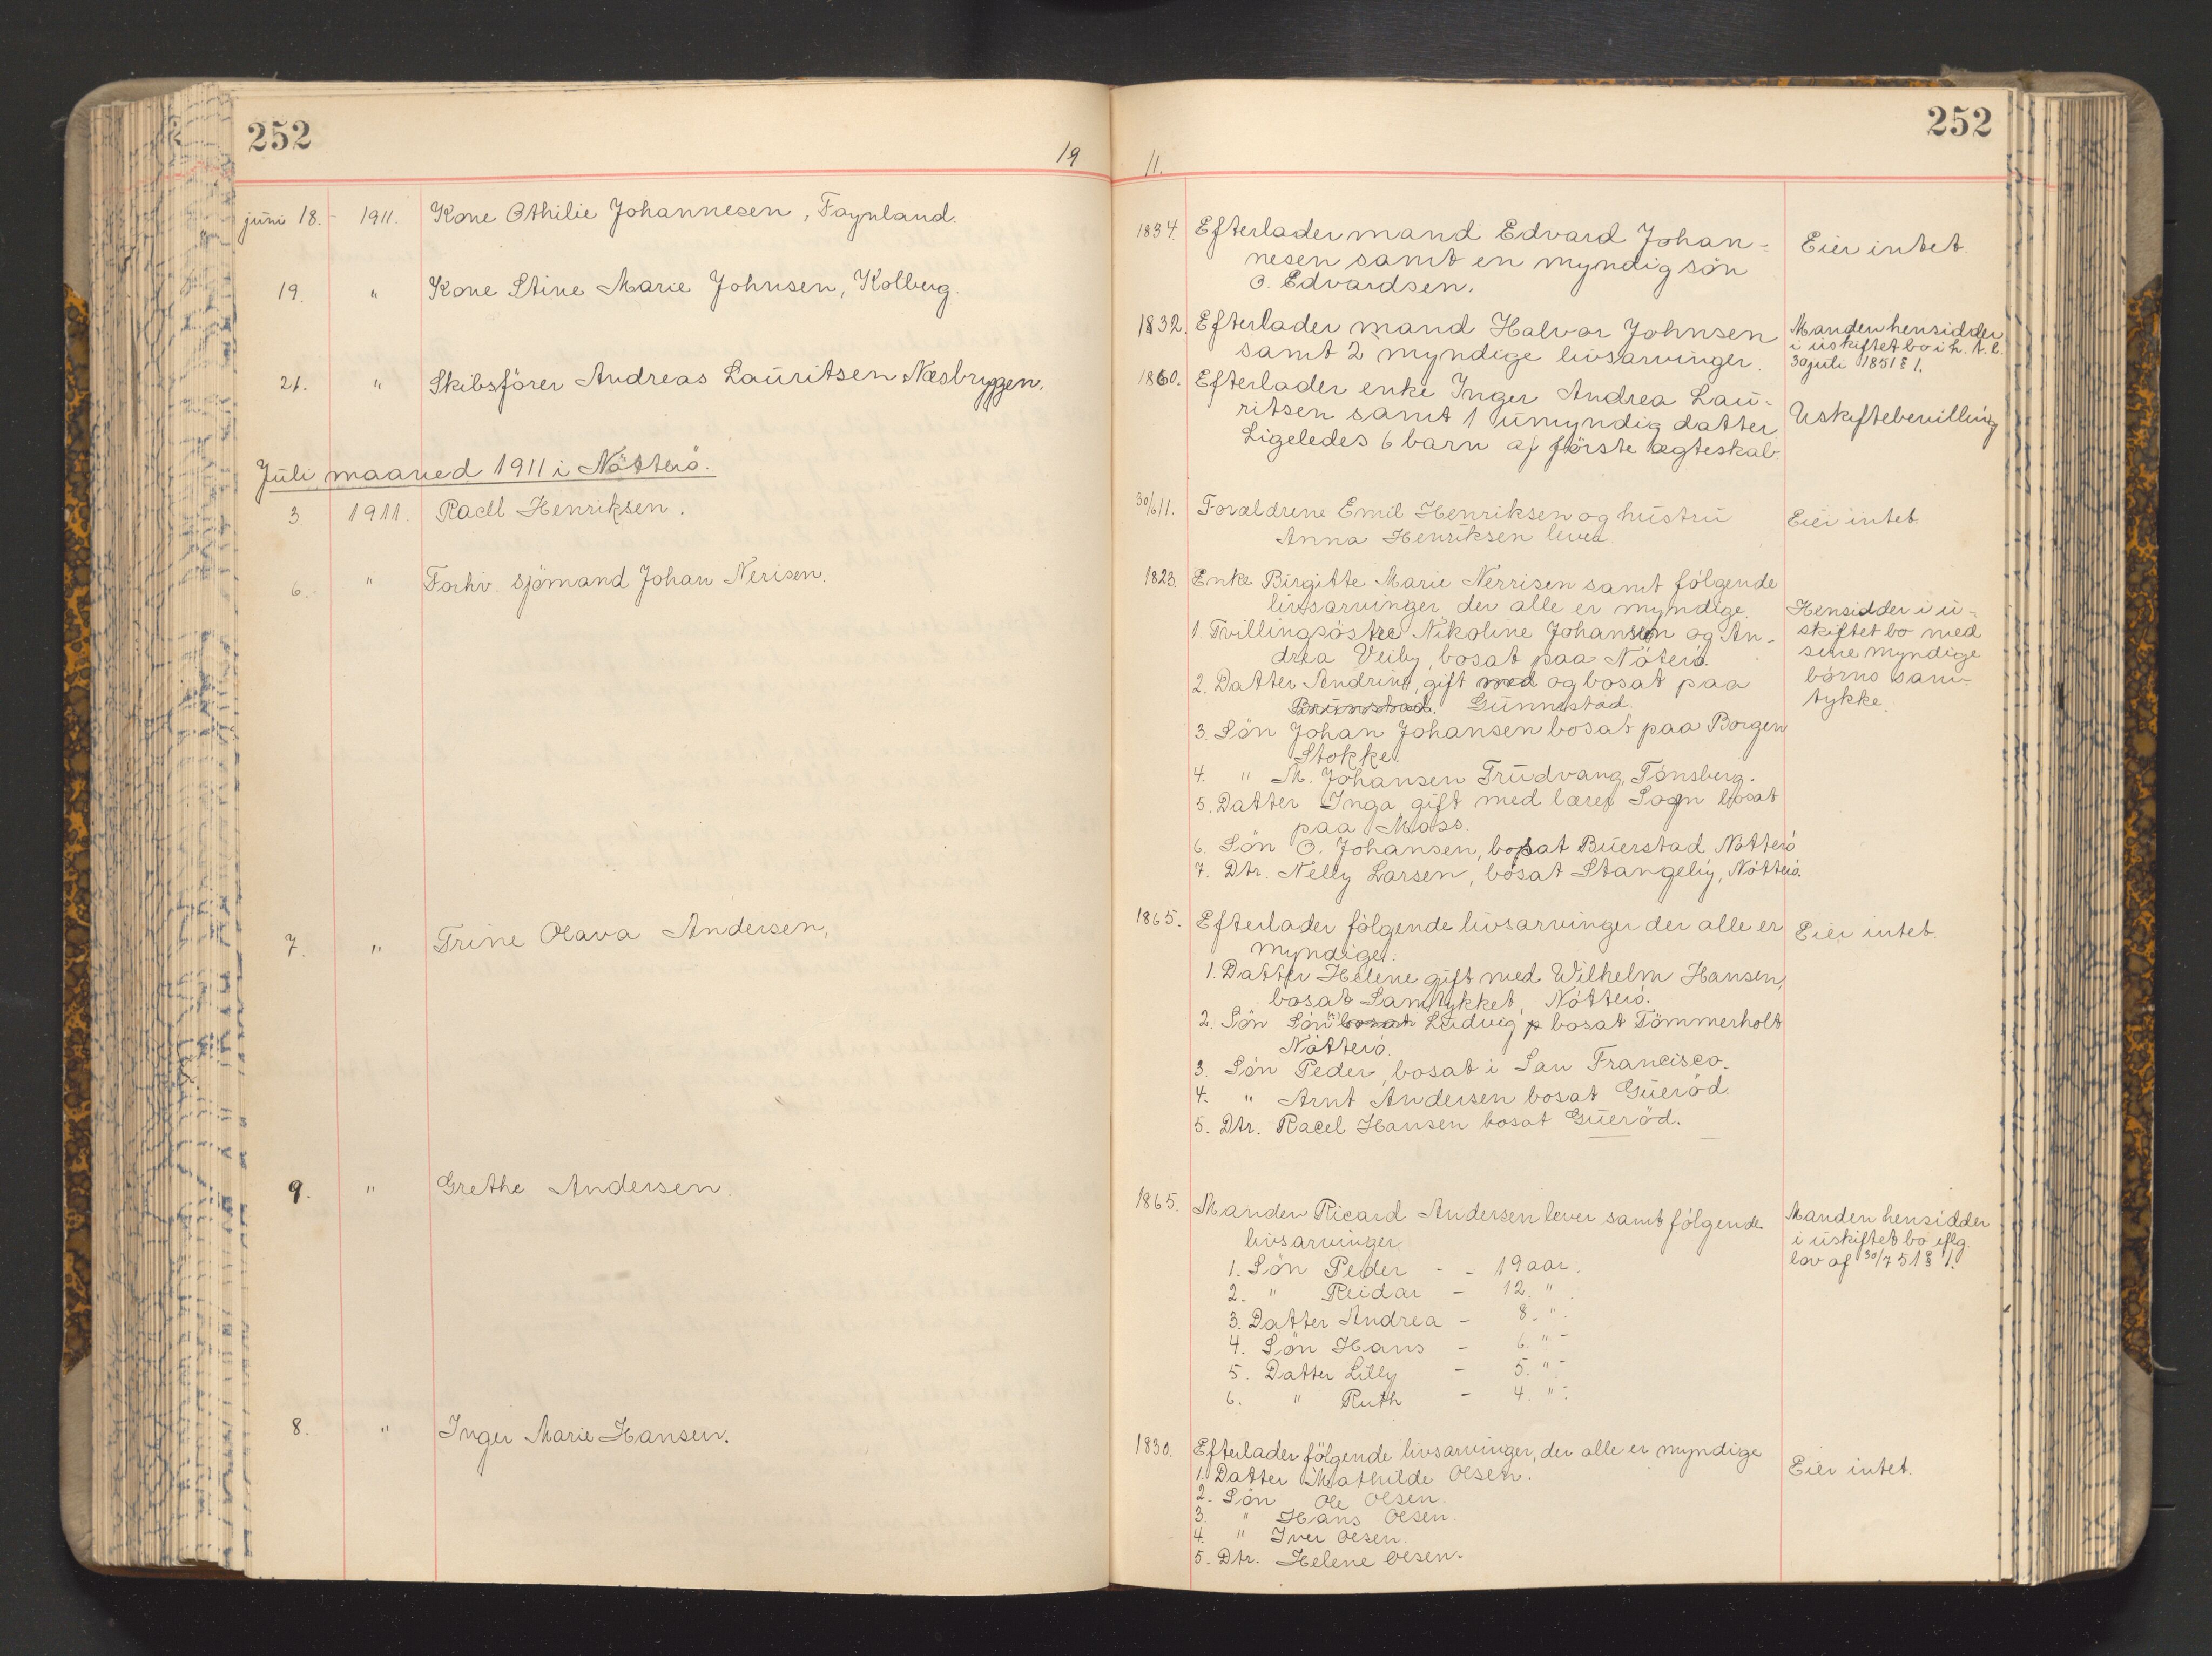 252
19
juni 18. 1911. Kone Othilie Johannesen, Føynland.
19. " Kone Stine Marie Johnsen, Kolberg.
21. " Skibsfører Andreas Lauritsen Næsbryggen.
Juli maaned 1911 i Nøtterö.
3. 1911. Raell Henriksen.
6. " Forhv. sjømand Johan Nerisen.
7. " Trine Olava Andersen,
9. " Grethe Andersen.
8. " Inger Marie Hansen.
252
11.
1834. Efterlader mand Edvard Johan-
nesen samt en myndig sön
O. Edvardsen.
Eier intet.
1832. Efterlader mand Halvor Johnsen
samt 2 myndige livsarvinger.
Manden hensidder
i uskiftet bo i h. t. l.
30 juli 1851 § 1.
1860. Efterlader enke Inger Andrea Lau-
ritsen samt 1 umyndig datter
Ligeledes 6 barn af første ægteskab.
Uskiftebevilling
30/6 11. Forældrene Emil Henriksen og hustru
Anna Henriksen lever.
Eier intet.
1823. Enke Birgitte Marie Nerrisen samt fölgende
livsarvinger der alle er myndige
1. Tvillingsöstre Nikoline Johansen og An-
drea Veiby, bosat paa Nöterö.
2. Datter Andrine, gift med og bosat paa
Brunstad. Gunnestad.
3. Sön Johan Johansen bosat paa Borgen
Stokke.
4. " M. Johansen Trudvang, Tönsberg.
5. Datter Inga gift med lærer Sogn bosat
paa Moss.
6. Sön O. Johansen, bosat Buerstad Nötterö
7. Dtr. Nelly Larsen, bosat Stangeby, Nötterö.
Hensidder i u-
skiftet bo med
sine myndige
börns sam-
tykke.
1865. Efterlader fölgende livsarvinger der alle er
myndige:
1. Datter Helene gift med Wilhelm Hansen,
bosat Samtykket, Nötterö.
2. Sön Sön bosat Ludvig, bosat Tömmerholt
Nötterö.
3. Sön Peder, bosat i San Francisco.
4. " Arnt Andersen bosat Gueröd.
5. Dtr. Racel Hansen bosat Gueröd.
Eier intet.
1865. Manden Ricard Andersen lever samt fölgende
livsarvinger
1. Sön Peder - - 19 aar.
2. " Reidar - 12. "
3. Datter Andrea - 8. "
4. Sön Hans - 6. " -
5. Datter Lilly - 5. " -
6. " Ruth - 4. " -
Manden hensidder
i uskiftet bo iflg.
lov af 30/7 51 § 1.
1830. Efterlader fölgende livsarvinger, der alle er myndige
1. Datter Mathilde Olsen.
2. Sön Ole Olsen.
3. " Hans Olsen.
4. " Iver Olsen.
5. Dtr. Helene Olsen.
Eier intet.